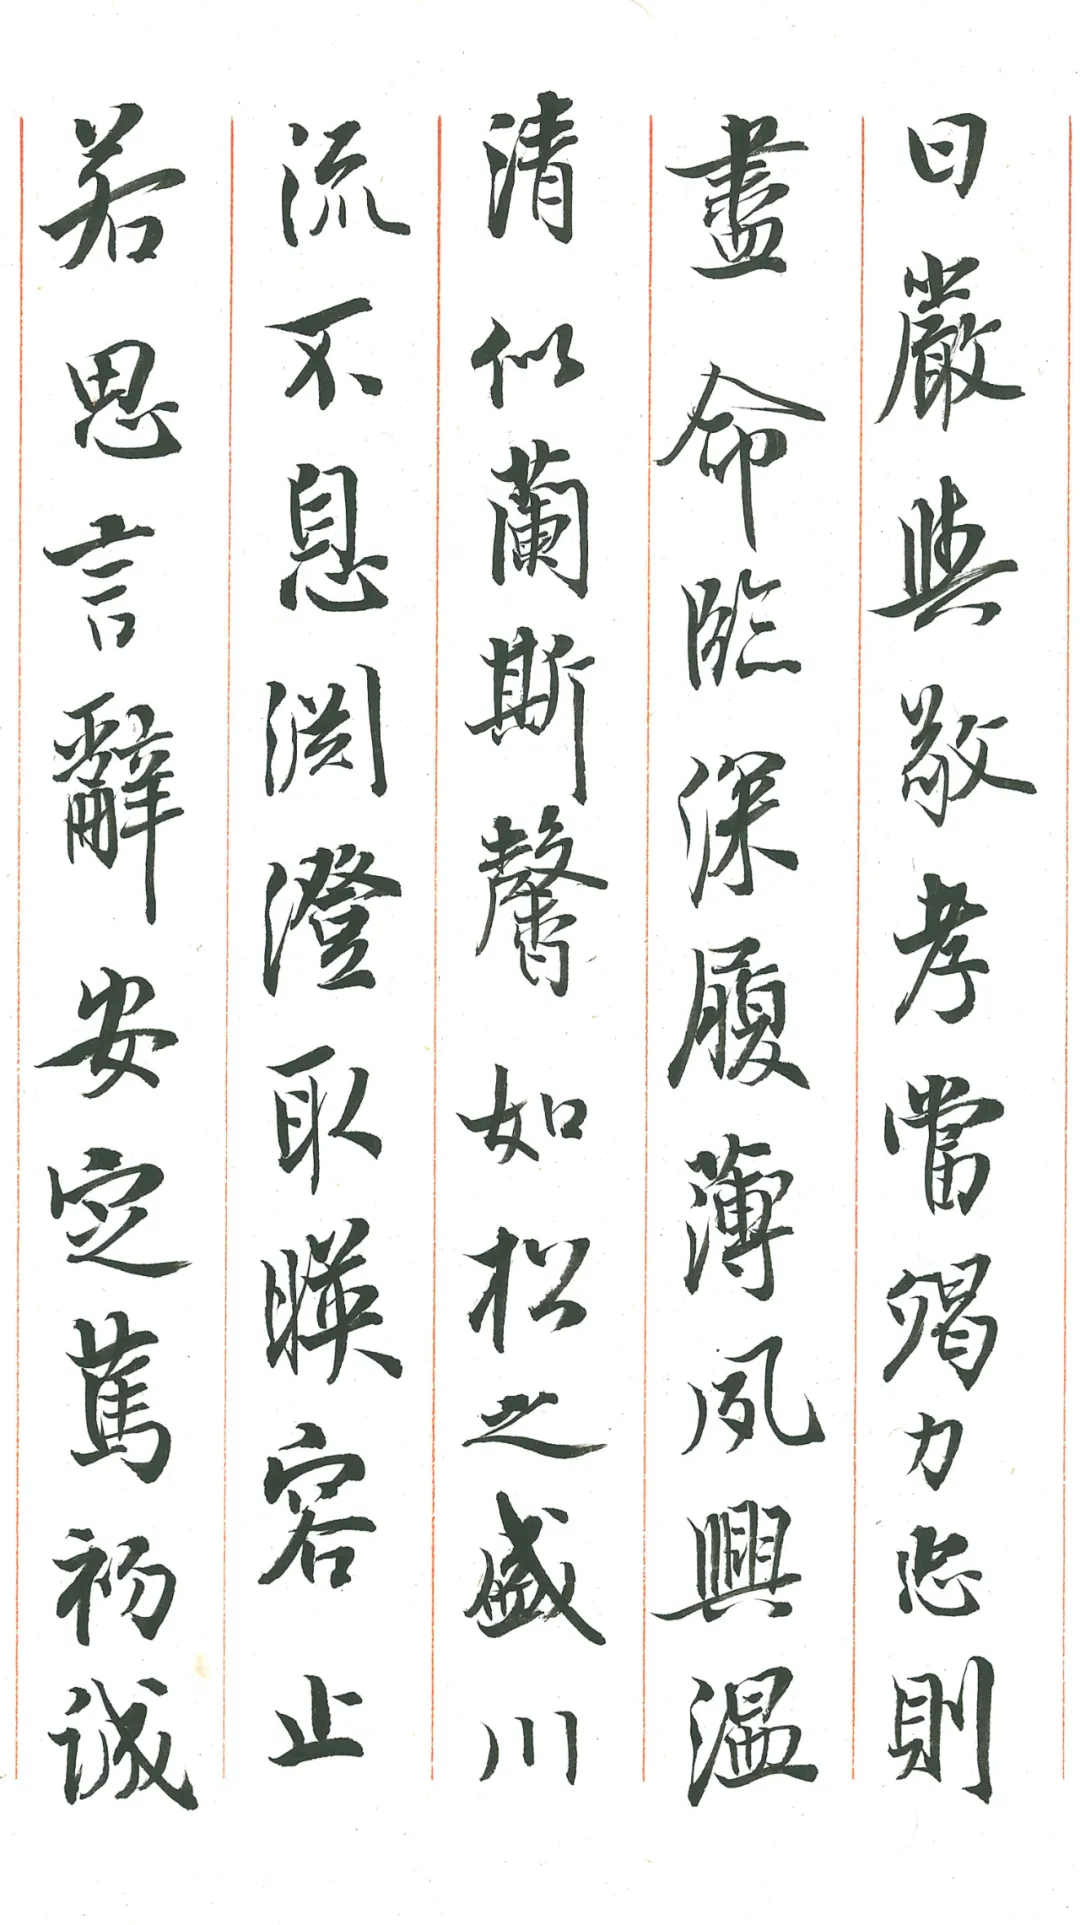 曰嚴與敬孝當竭力忠則
盡命臨深履薄夙興溫
清似蘭斯馨如松之盛川
流不息淵澄取暎容止
若思言辭安定篤初誠